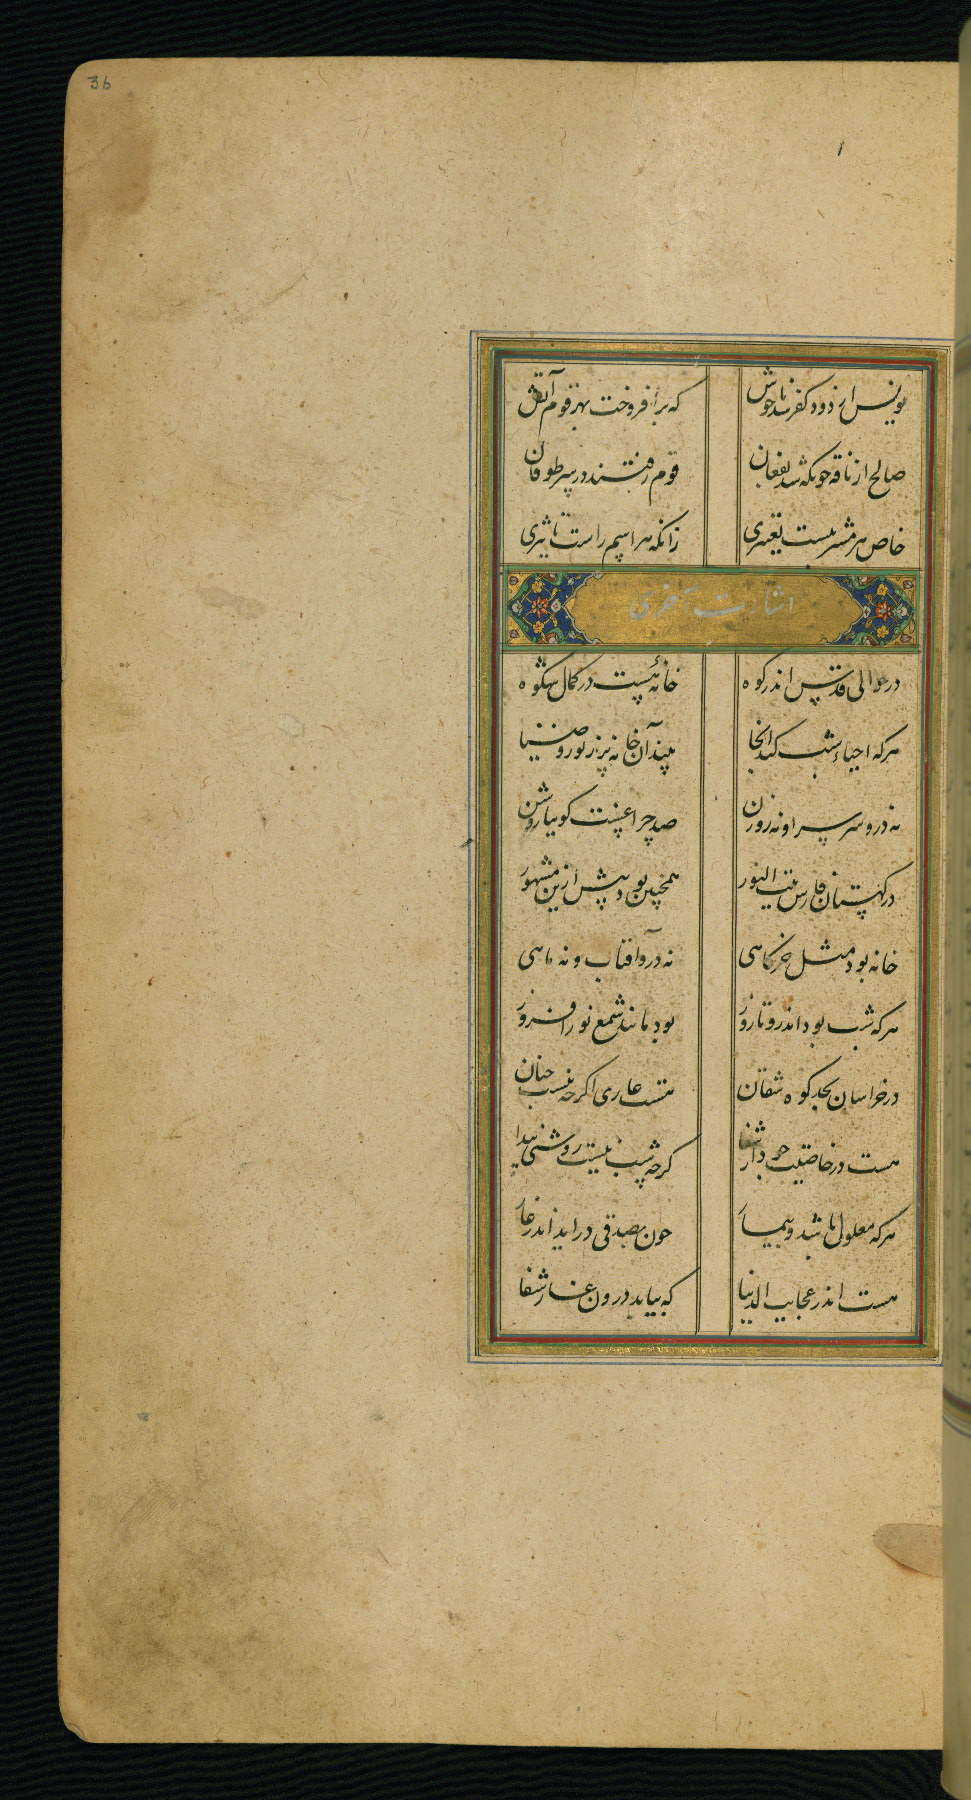 36
یونس از دود کفر شد ناخوش
که برافروخت بهر قوم آتش
صالح از ناقه چونکه شد بفغان
قوم رفتند در پی طوفان
خاص هر مشر بیست تعبیری
زانکه هر اسم راست تاثیری
اشارت آخری
در حوالی قدس اندر کوه
خانهٔ هست در کمال شکوه
هرکه احیاء شب کند آنجا
بیند آن خانه پر ز نور و ضیا
نه در و سر او نه روزن
صد چراغست گوییا روشن
در کهستان فارس بیت النور
همچنین بود پیش ازین مشهور
خانه بود مثل خرگاهی
نه درو آفتاب و نه ماهی
هرکه شب بود اندرو تا روز
بود مانند شمع نور افروز
در خراسان بحد کوه شقان
هست غاری اگرچه نیست چنان
هست در خاصیت چو دار شفا
گرچه شب نیست روشنی پیدا
هرکه معلول باشد و بیمار
چون بصدقی در آید اندر غار
هست اندر عجایب الدنیا
که بیابد درون غار شفا